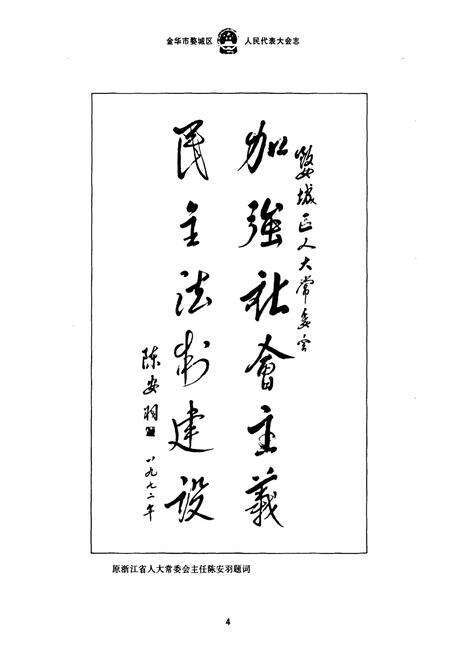 金华市婺城区 人民代表大会志
婺城区人大常委会
加強社會主義
民主法制建设
陈安羽
一九九二年
原浙江省人大常委会主任陈安羽题词
4